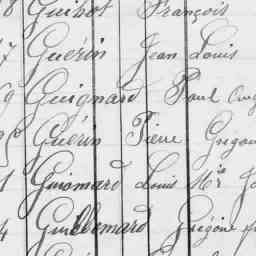 8 Guibot François
7 Guérin Jean Louis
9 Guignard Paul
Guérin Pierre
1 Guiomard Louis Mie
4 Guillemard Grégoire